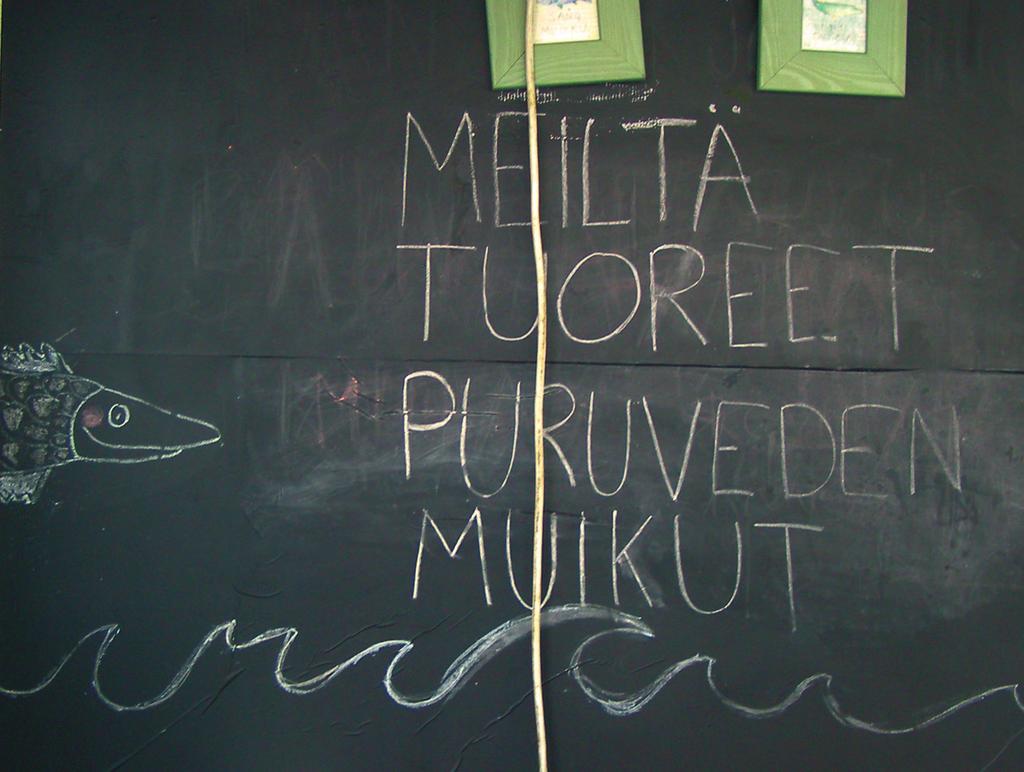 MEILTÄ
TUOREET
PURUVEDEN
MUIKUT